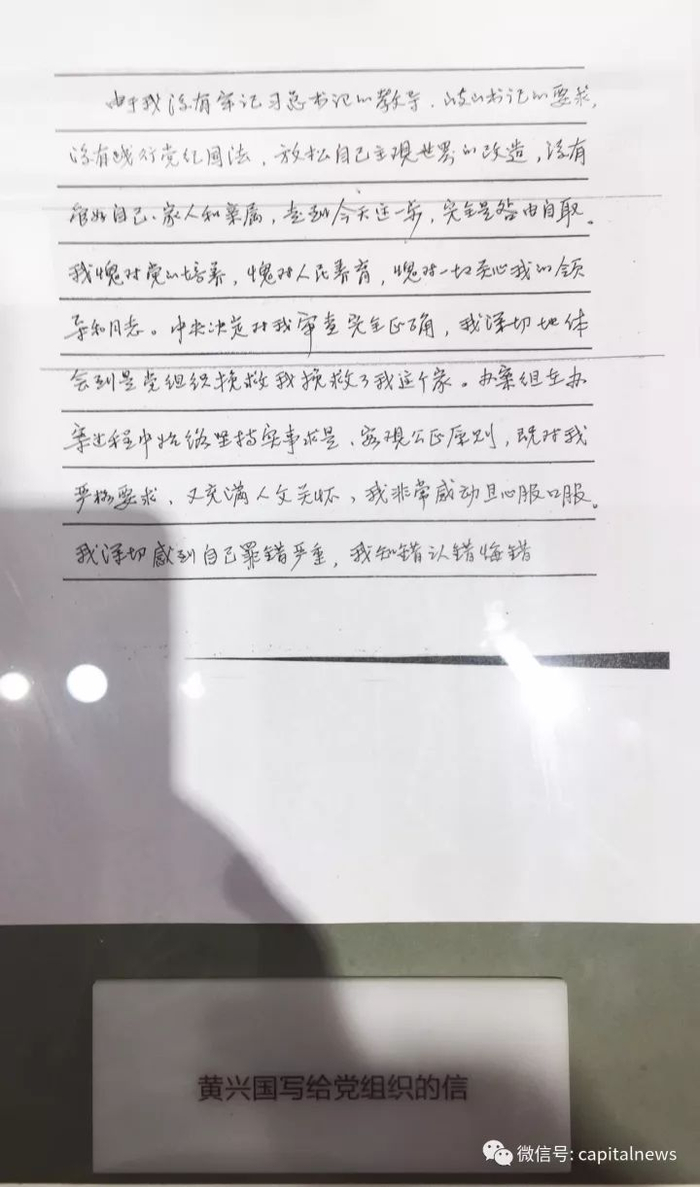 由于我没有牢记习总书记的教导、岐山书记的要求，
没有践行党纪国法，放松自己主观世界的改造，没有
管好自己、家人和亲属，走到今天这一步，完全是咎由自取。
我愧对党的培养，愧对人民养育，愧对一切关心我的领
导和同志。中央决定对我审查完全正确，我深切地体
会到是党组织挽救我挽救了我这个家。办案组在办
案过程中始终坚持实事求是、客观公正原则，既对我
严格要求、又充满人文关怀，我非常感动且心服口服。
我深切感到自己罪错严重，我知错认错悔错
黄兴国写给党组织的信
微信号: capitalnews